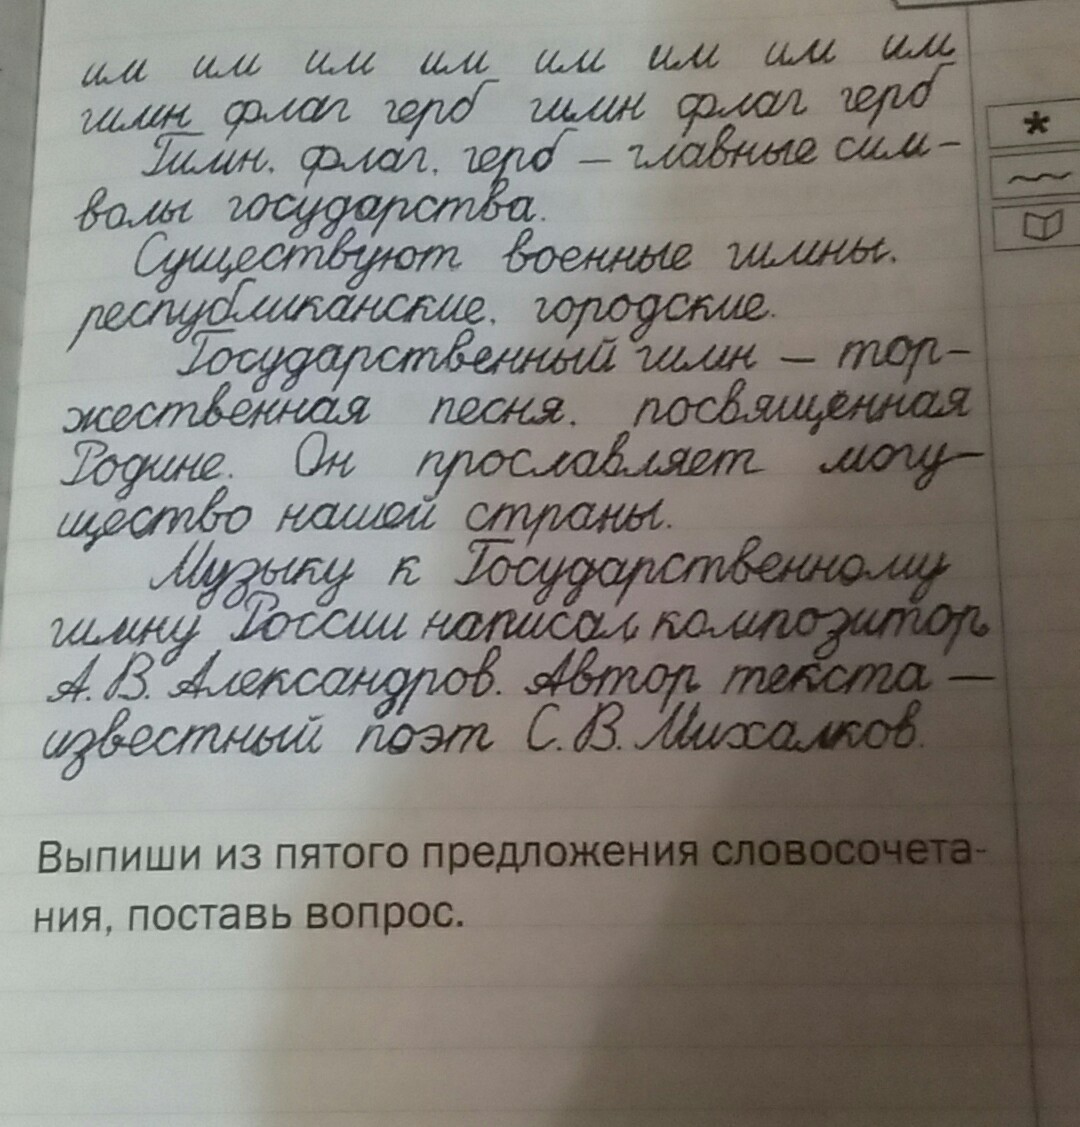 им им им им им им им им
гимн флаг герб гимн флаг герб
Гимн, флаг, герб – главные сим-
волы государства.
Существуют военные гимны,
республиканские, городские.
Государственный гимн – тор-
жественная песня, посвящённая
Родине. Он прославляет могу-
щество нашей страны.
Музыку к Государственному
гимну России написал композитор
А. В. Александров. Автор текста –
известный поэт С. В. Михалков.
Выпиши из пятого предложения словосочета-
ния, поставь вопрос.